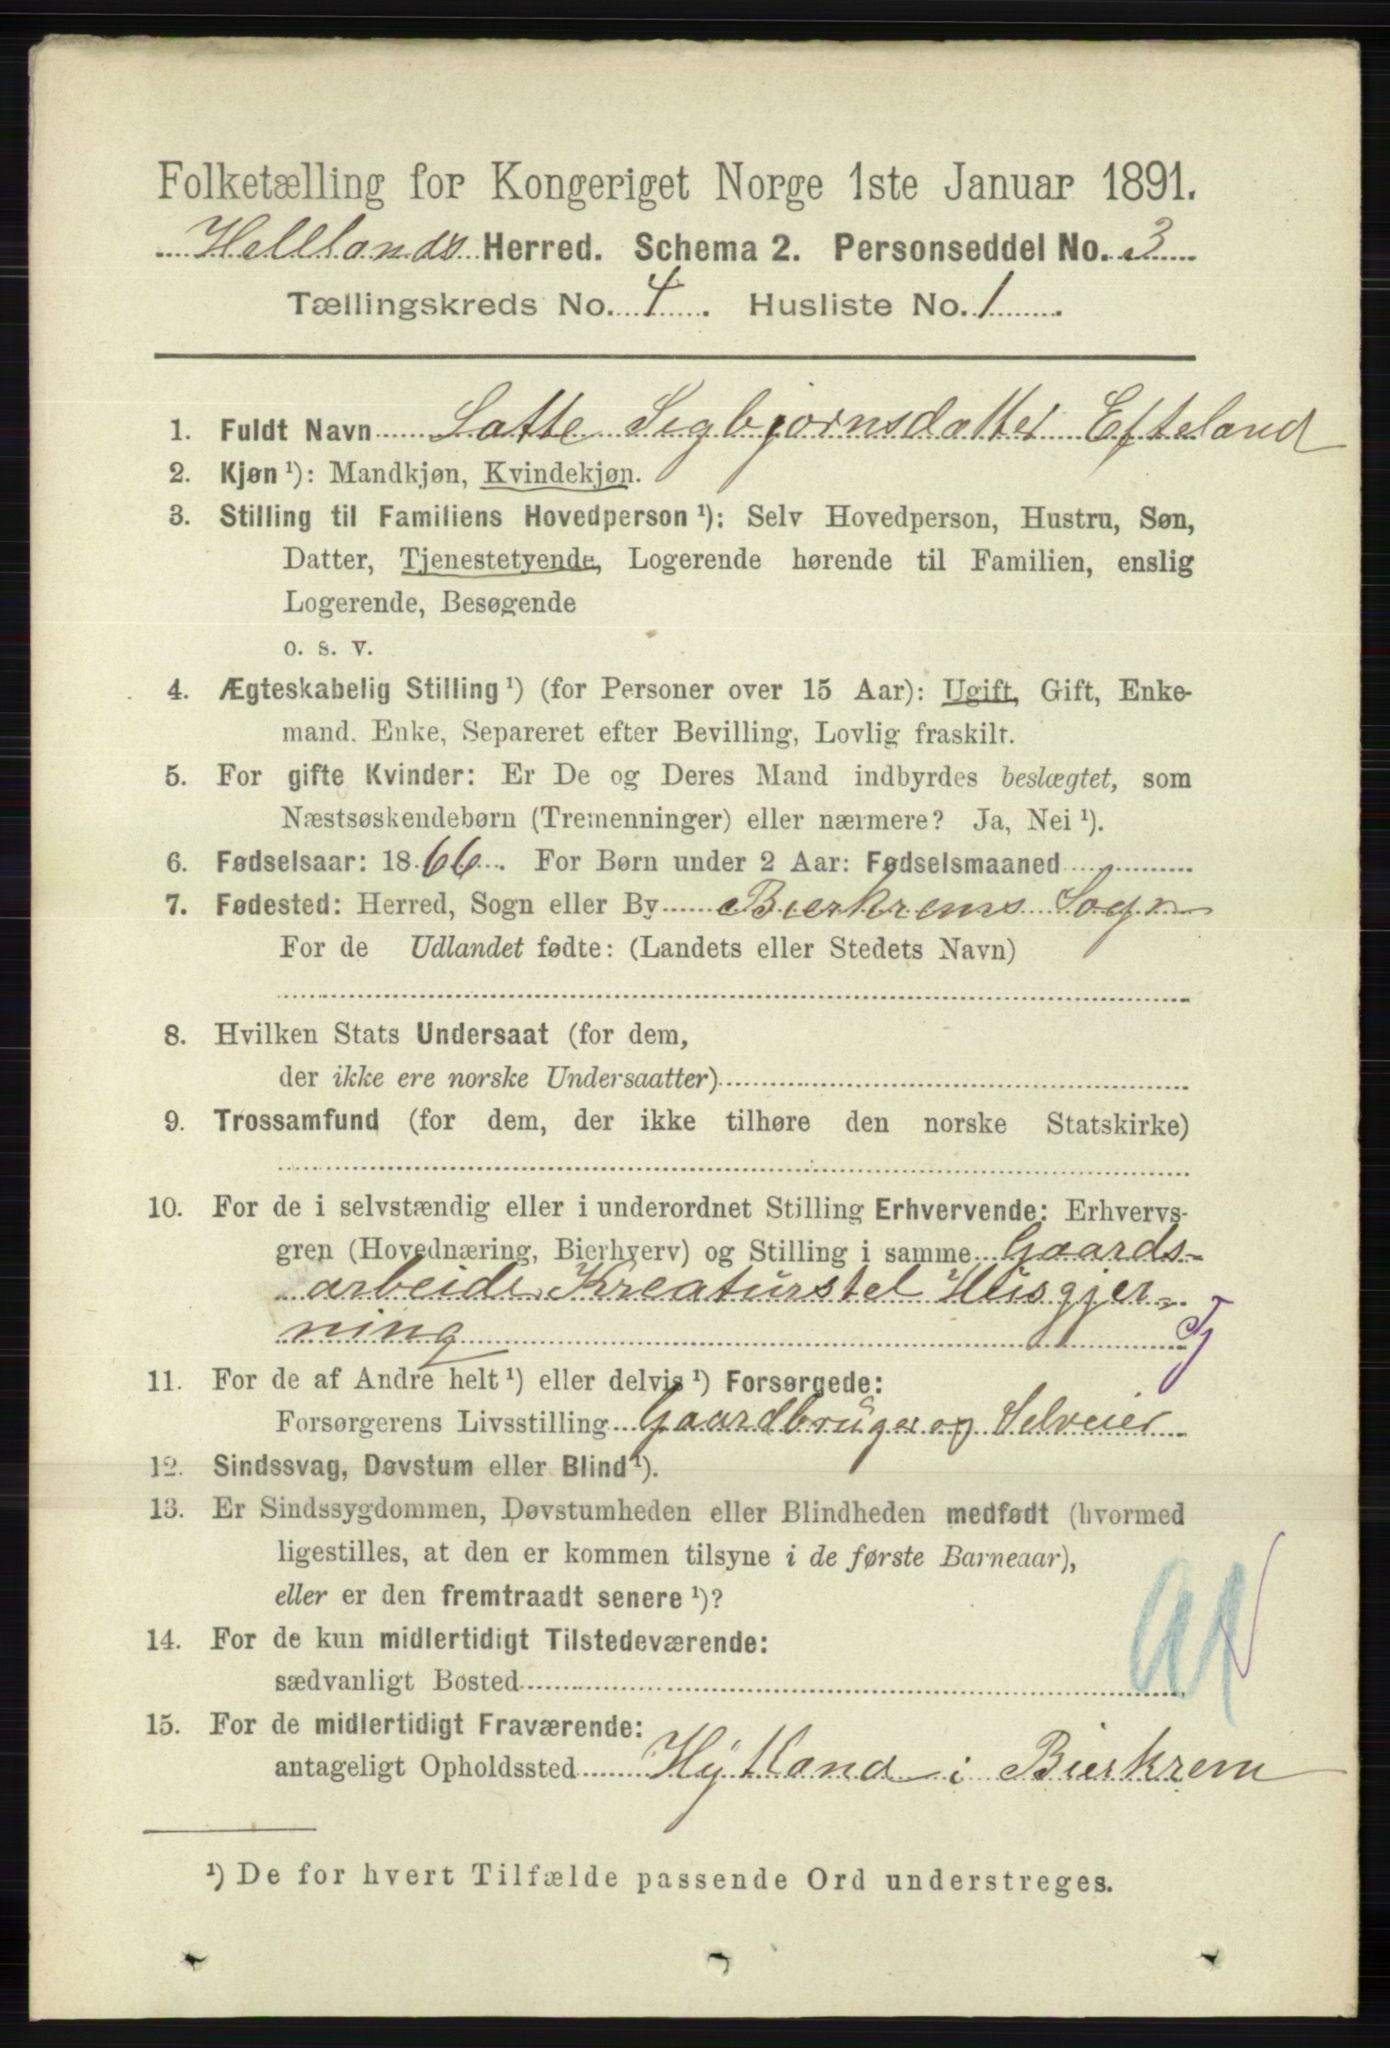 Folketælling for Kongeriget Norge 1ste Januar 1891.
Hellands Herred. Schema 2. Personseddel No. 3
Tællingskreds No. 4. Husliste No. 1.
1. Fuldt Navn Latte Segbjørnsdatter Efteland
2. Kjøn ¹): Mandkjøn, Kvindekjøn.
3. Stilling til Familiens Hovedperson ¹): Selv Hovedperson, Hustru, Søn,
Datter, Tjenestetyende, Logerende hørende til Familien, enslig
Logerende, Besøgende
o. s. v.
4. Ægteskabelig Stilling ¹) (for Personer over 15 Aar): Ugift, Gift, Enke-
mand, Enke, Separeret efter Bevilling, Lovlig fraskilt.
5. For gifte Kvinder: Er De og Deres Mand indbyrdes beslægtet, som
Næstsøskendebørn (Tremenninger) eller nærmere? Ja, Nei ¹).
6. Fødselsaar: 1866. For Børn under 2 Aar: Fødselsmaaned
7. Fødested: Herred, Sogn eller By Bierkrems Sogn
For de Udlandet fødte: (Landets eller Stedets Navn)
8. Hvilken Stats Undersaat (for dem,
der ikke ere norske Undersaatter)
9. Trossamfund (for dem, der ikke tilhøre den norske Statskirke)
10. For de i selvstændig eller i underordnet Stilling Erhvervende: Erhvervs-
gren (Hovednæring, Bierhverv) og Stilling i samme Gaards-
arbeide Kreaturstel Husgjer-
ning Tj
11. For de af Andre helt ¹) eller delvis ¹) Forsørgede:
Forsørgerens Livsstilling Gaardbruger og Selveier
12. Sindssvag, Døvstum eller Blind ¹).
13. Er Sindssygdommen, Døvstumheden eller Blindheden medfødt (hvormed
ligestilles, at den er kommen tilsyne i de første Barneaar),
eller er den fremtraadt senere ¹)?
14. For de kun midlertidigt Tilstedeværende:
sædvanligt Bosted
15. For de midlertidigt Fraværende:
antageligt Opholdssted Hytland i Bierkrem
¹) De for hvert Tilfælde passende Ord understreges.